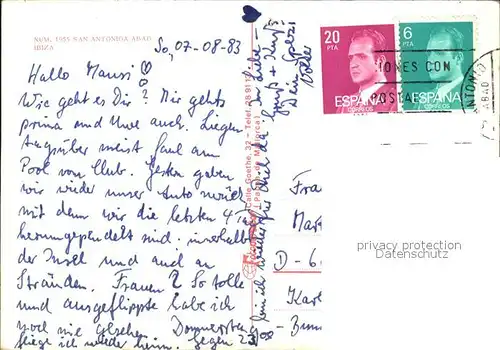 NUM. 1955 SAN ANTONIO ABAD
IBIZA
So, 07-08-83
Hallo Mausi
Wie geht es Dir? Mir gehts
prima und Uwe auch. Liegen
tagsüber meist faul am
Pool vom Club. Gestern gaben
wir wieder unser Auto zurück
mit dem wir die letzten 4 T
herumgependelt sind. innerhalb
der Insel und auch an
Stränden. Frauen? So tolle
und ausgeflippte habe ich
noch nie gesehen. Donnerstag
fliege ich wieder heim. Gegen 23
Gruß + Kuß
Dein
Calle Goethe, 32 - Telef. 28 91
(Palma de Mallorca)
20
PTA
ESPAÑA
CORREOS
6
PTA
ESPAÑA
CORREOS
IONES CON
OSTA
ANTONIO
ABAD
Frau
Mar
D-6
Karl
privacy protection
Datenschutz